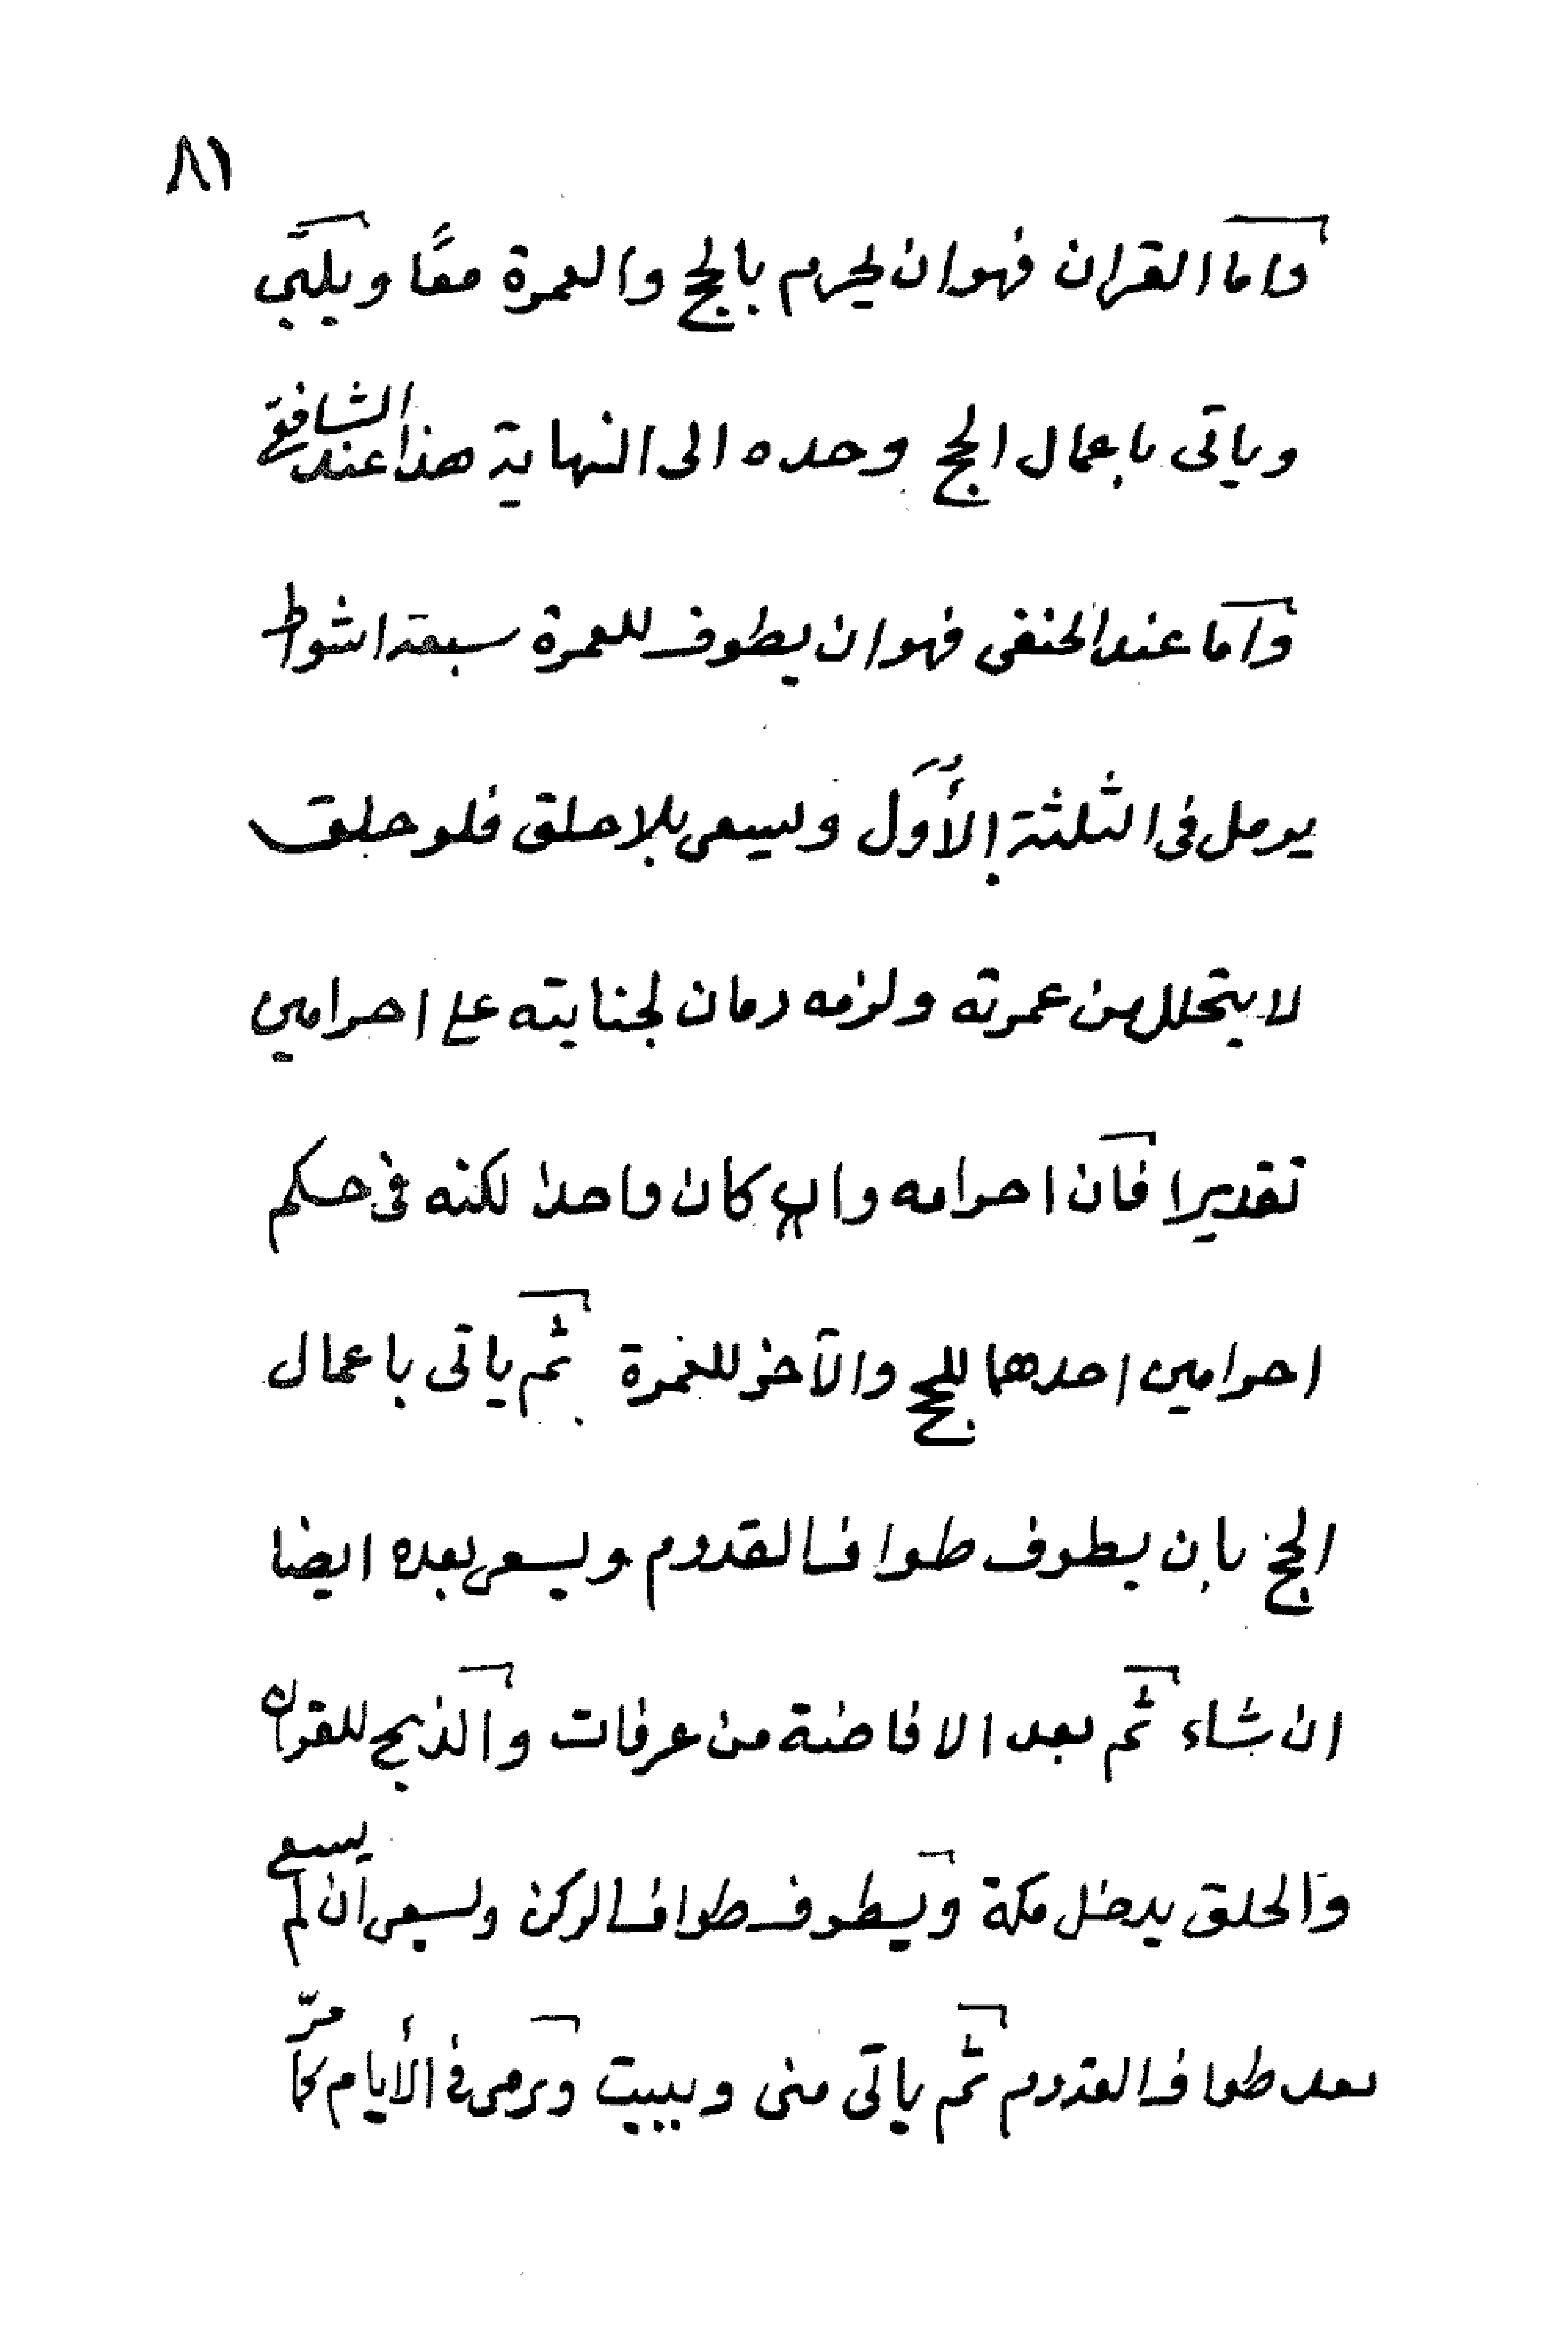 ٨١
واما القران فهو ان يحرم بالحج والعمرة معًا ويلبّى
وياتى باعمال الحج وحده الى النهاية هذا عند الشافعى
واما عند الحنفى فهو ان يطوف للعمرة سبعة اشواط
يرمل فى الثلثة الأُوَل ويسعى بلا حلق فلو حلق
لا يتحلل من عمرته ولزمه دمان لجنايته على احرامين
تقديرا فان احرامه وان كان واحدا لكنه فى حكم
احرامين احدهما للحج والآخر للعمرة ثم ياتى باعمال
الحج بان يطوف طواف القدوم ويسعى بعده ايضا
ان شاء ثم بعد الافاضة من عرفات والذبح للقران
والحلق يدخل مكة ويطوف طواف الركن ويسعى ان لم يسع
بعد طواف القدوم ثم ياتى منى ويبيت ويرمى فى الأيام كما مرّ